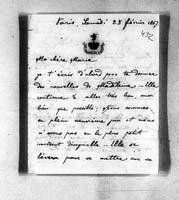 Paris, Lundi 28 février 1867
432
Ma chère Marie
je t'écris d'abord pour te donner
des nouvelles de Madeleine. Elle
continue à aller très bien, mon
bien que possible; nous sommes
en pleine neuvaine pour et nous
n'avons pas eu le plus petit
instant désagréable. Elle se
lèvera pour se mettre sur sa